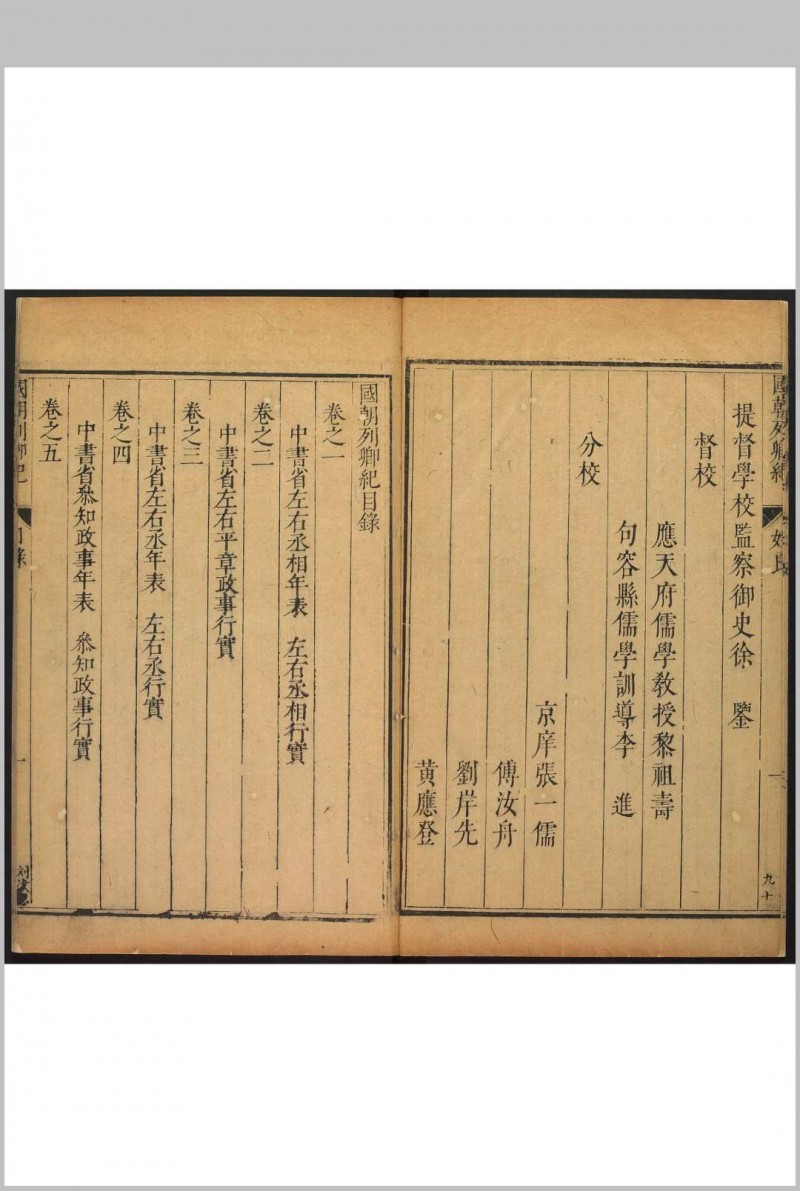 國朝列卿紀
姓氏
一
九十
提督學校監察御史徐 鑒
督校
應天府儒學教授黎祖壽
句容縣儒學訓導李 進
分校
京庠張一儒
傅汝舟
劉岸先
黃應登
國朝列卿紀目錄
卷之一
中書省左右丞相年表 左右丞相行實
卷之二
中書省左右平章政事行實
卷之三
中書省左右丞年表 左右丞行實
卷之四
中書省叅知政事年表 叅知政事行實
卷之五
國朝列卿紀
目錄
一